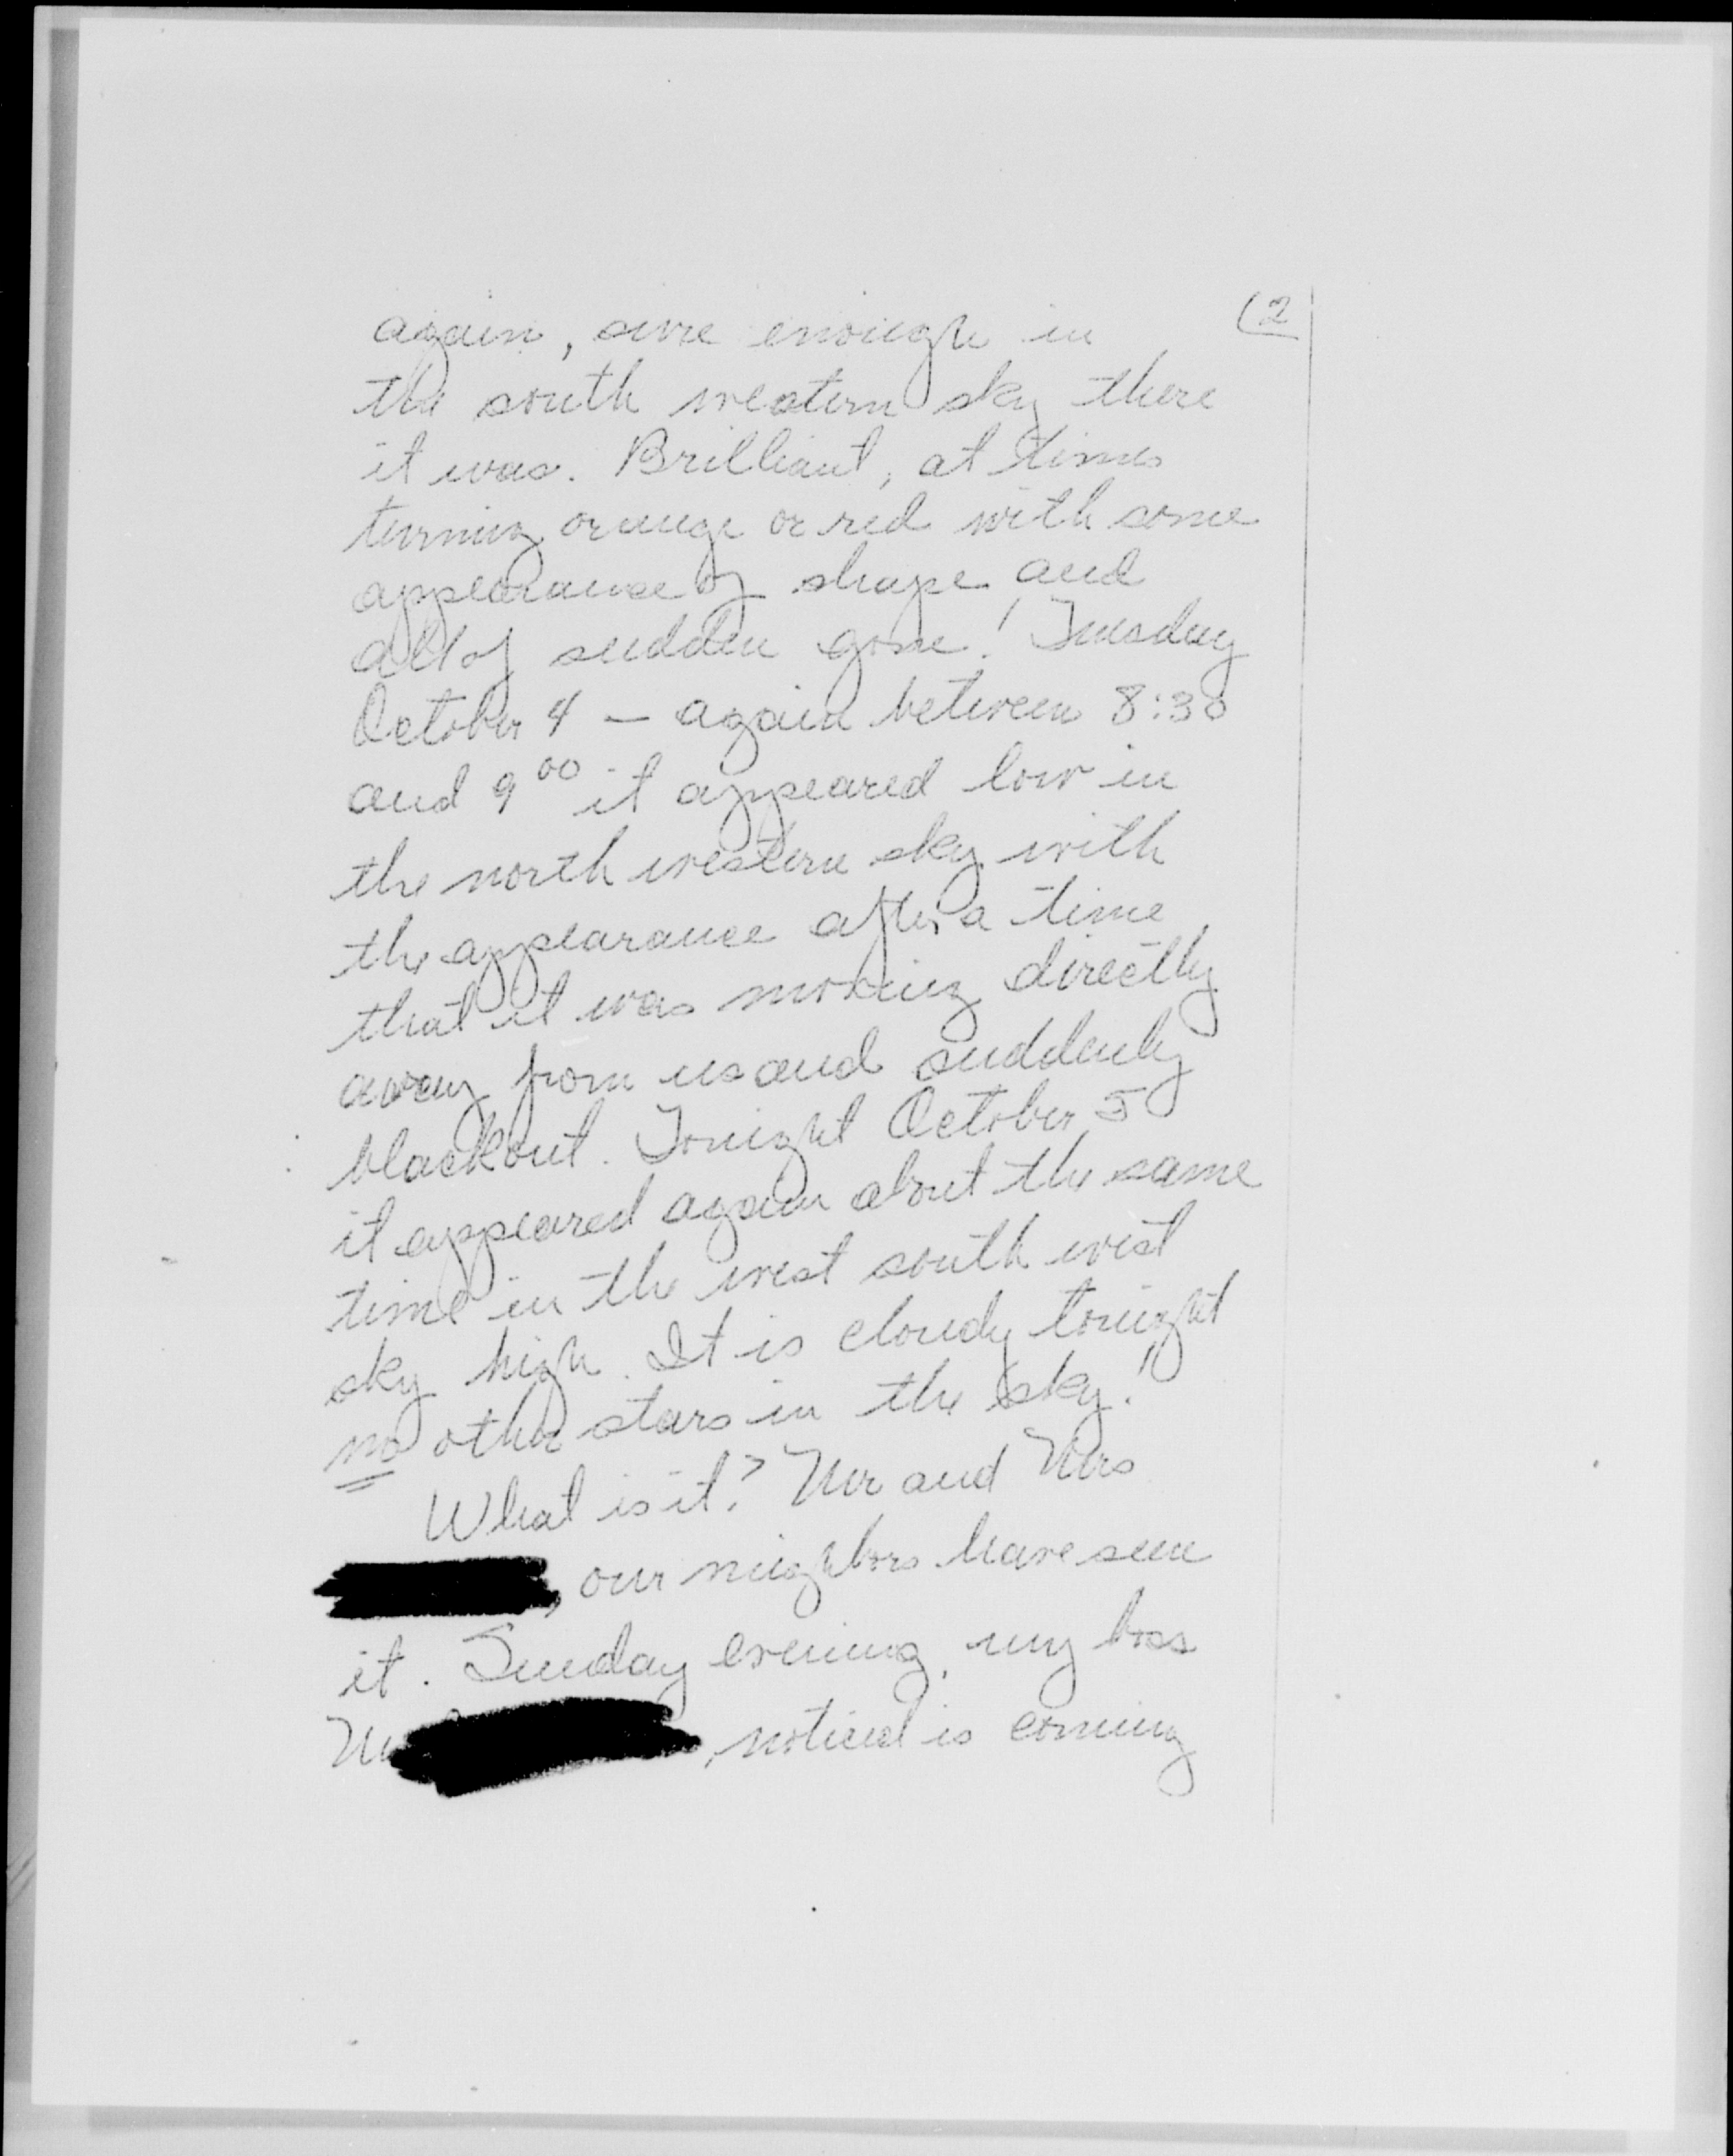 (2
again, sure enough in
the south western sky there
it was. Brilliant, at times
turning orange or red with some
appearance of shape and
all of sudden gone! Tuesday
October 4 — again between 8:30
and 9⁰⁰ it appeared low in
the north western sky with
the appearance after a time
that it was moving directly
away from us and suddenly
blackout. Tonight October 5
it appeared again about the same
time in the west south west
sky high. It is cloudy tonight
no other stars in the sky!
What is it? Mr and Mrs
, our neighbors have seen
it. Sunday evening, my boss
Mr , noticed is coming